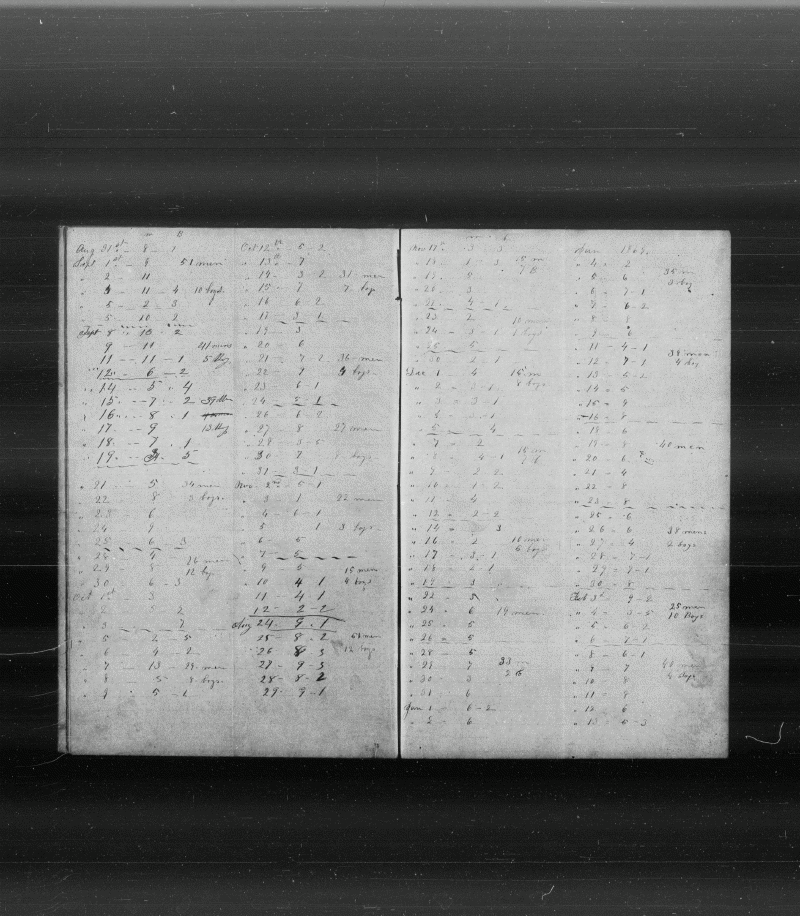 m B
Aug 31st - 8 - 1
Sept 1st - 8 51 men
" 2 - 11
" 3 - 11 - 4 10 boys
" 5 - 2 3
" 5 - 10 2
Sept 8 - 10 - 2
9 - 11 41 mens
11 - 11 - 1 5 Boy
" 12 - 6 - 2
" 14 - 5 - 4
" 15 - 7 - 2 39 Men
" 16 - 8 - 1
" 17 - 9 13 Boy
" 18 - 7 - 1
" 19 - 3 - 5
" 21 - 5 34 men
" 22 - 8 3 boys
" 23 - 6
" 24 9
" 25 - 6 - 3
" 28 - 4 26 men
" 29 - 8 12 boy
" 30 6 - 3
Oct 1st - 3
" 2 5 2
" 3 - 2
" 5 - 2 - 5
" 6 4 - 2
" 7 - 13 - 29 men
" 8 - 5 3 boys
" 9 5 - 1
Oct 12th - 5 - 2
" 13th - 7
" 14 - 3 - 2 31 men
" 15 - 7 7 boy
" 16 6 2
" 17 - 3 1
" 19 - 3
" 20 - 6
" 21 - 7 - 2 36 men
" 22 - 7 4 boys
" 23 6 - 1
" 24 - 5 1
" 26 6 - 2
" 27 - 8 27 men
" 29 - 3 - 5
" 30 7 8 boys
" 31 - 3 1
Nov 2nd - 5 - 1
" 3 1 22 men
" 4 - 6 - 1
" 5 1 3 boys
" 6 - 5
" 7 - 5
" 9 5 15 men
" 10 4 1 4 boys
" 11 - 4 1
12 - 2 - 2
Aug 24 - 9 - 1
" 25 - 8 - 2 51 men
" 26 8 3 12 boys
" 27 - 9 - 3
" 28 - 8 - 2
29 - 9 - 1
Nov 17 - 3 3
" 18 1 - 3 15 m
" 19 2 7 B
" 20 3
" 21 - 4 - 1
" 23 2 10 men
" 24 - 3 - 1
" 25 5
" 30 - 2 - 1
Dec 1 - 4 15 m
" 2 - 3 - 1 8 boys
" 3 - 3 - 1
" 4 - 3 - 1
" 5 - 4
" 7 - 2
" 8 - 4 - 1 15 m
" 9 - 2 2
" 10 - 1 - 2
" 11 - 4
" 12 - 2 - 2
" 14 - 3
" 16 - 2 10 men
" 17 - 3 - 1 6 boys
" 18 - 2 - 1
" 19 - 3
" 22 - 5
" 24 6 19 men
" 25 - 5
" 26 - 5
" 28 - 5
" 29 - 7 33 m
" 30 - 3 2 B
" 31 6
Jan 1 - 6 - 2
" 2 - 6
Jan
" 4 - 2
" 5 - 6 35 m
" 6 - 7 - 1 3 boy
" 7 - 6 - 2
" 8 1
" 9 - 6
" 11 - 4 - 1 38 men
" 12 - 7 - 1 4 boy
" 13 - 5 - 2
" 14 - 5
" 15 - 4
" 16 - 8
" 18 - 6
" 19 - 8 40 men
" 20 - 6
" 21 - 4
" 22 - 8
" 23 - 8
" 25 - 6
" 26 - 6 38 mens
" 27 - 4 2 boys
" 28 - 7 - 1
" 29 - 7 - 1
" 30 - 8
Feb 3rd - 9 - 2
" 4 - 3 - 5 25 men
" 5 6 - 2 10 Boys
" 6 - 7 - 1
" 8 - 6 - 1
" 9 - 7 41 men
" 10 - 8 4 boys
" 11 - 8
" 12 6
" 13 5 - 3